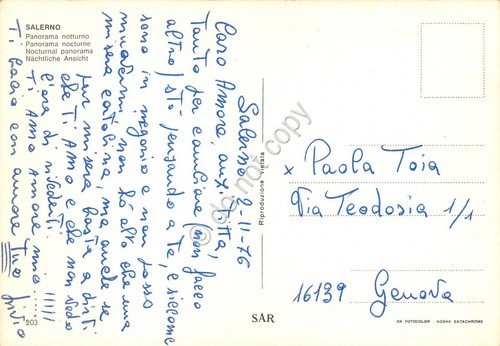 SALERNO
Panorama notturno
Panorama nocturne
Nocturnal panorama
Nächtliche Ansicht
Salerno 2-11-76
Caro Amore, anzi Titta,
Tanto per cambiare (non faccio
altro) stò pensando a te, e siccome
sono in negozio e non posso
muovermi non hò altro che una
misera cartolina, ma anche se
pur misera basta a dirti
che Ti Amo e che non vedo
l'ora di rivederti.
Ti Amo Amore mio.... !!!!!
Ti bacio con amore Tuo
203
Riproduzione vietata
SAR
x Paola Toia
Via Teodosia 1/1
16139 Genova
DA FOTOCOLOR - KODAK EKTACHROME
do not copy